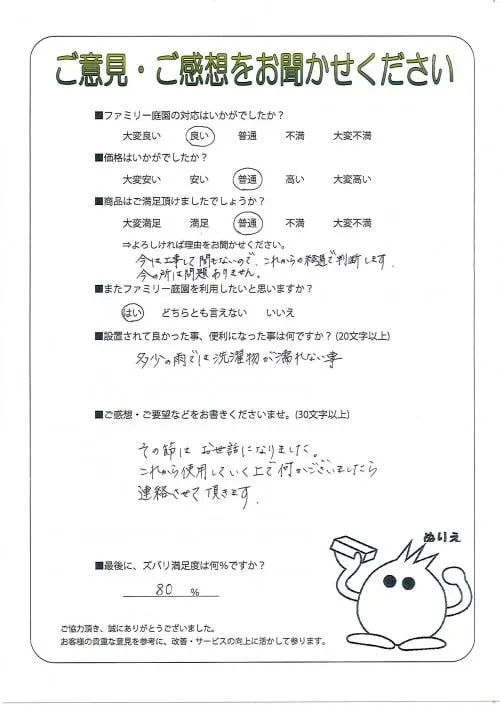 ご意見・ご感想をお聞かせください
■ファミリー庭園の対応はいかがでしたか？
大変良い　良い　普通　不満　大変不満
■価格はいかがでしたか？
大変安い　安い　普通　高い　大変高い
■商品はご満足頂けましたでしょうか？
大変満足　満足　普通　不満　大変不満
⇒よろしければ理由をお聞かせください。
今は工事して間もないので、これからの経過で判断します。
今の所は問題ありません。
■またファミリー庭園を利用したいと思いますか？
はい　どちらとも言えない　いいえ
■設置されて良かった事、便利になった事は何ですか？(20文字以上)
多少の雨では洗濯物が濡れない事
■ご感想・ご要望などをお書きくださいませ。(30文字以上)
その節は お世話になりました。
これから使用していく上で何かございましたら
連絡させて頂きます。
ぬりえ
■最後に、ズバリ満足度は何％ですか？
80 ％
ご協力頂き、誠にありがとうございました。
お客様の貴重な意見を参考に、改善・サービスの向上に活かして参ります。